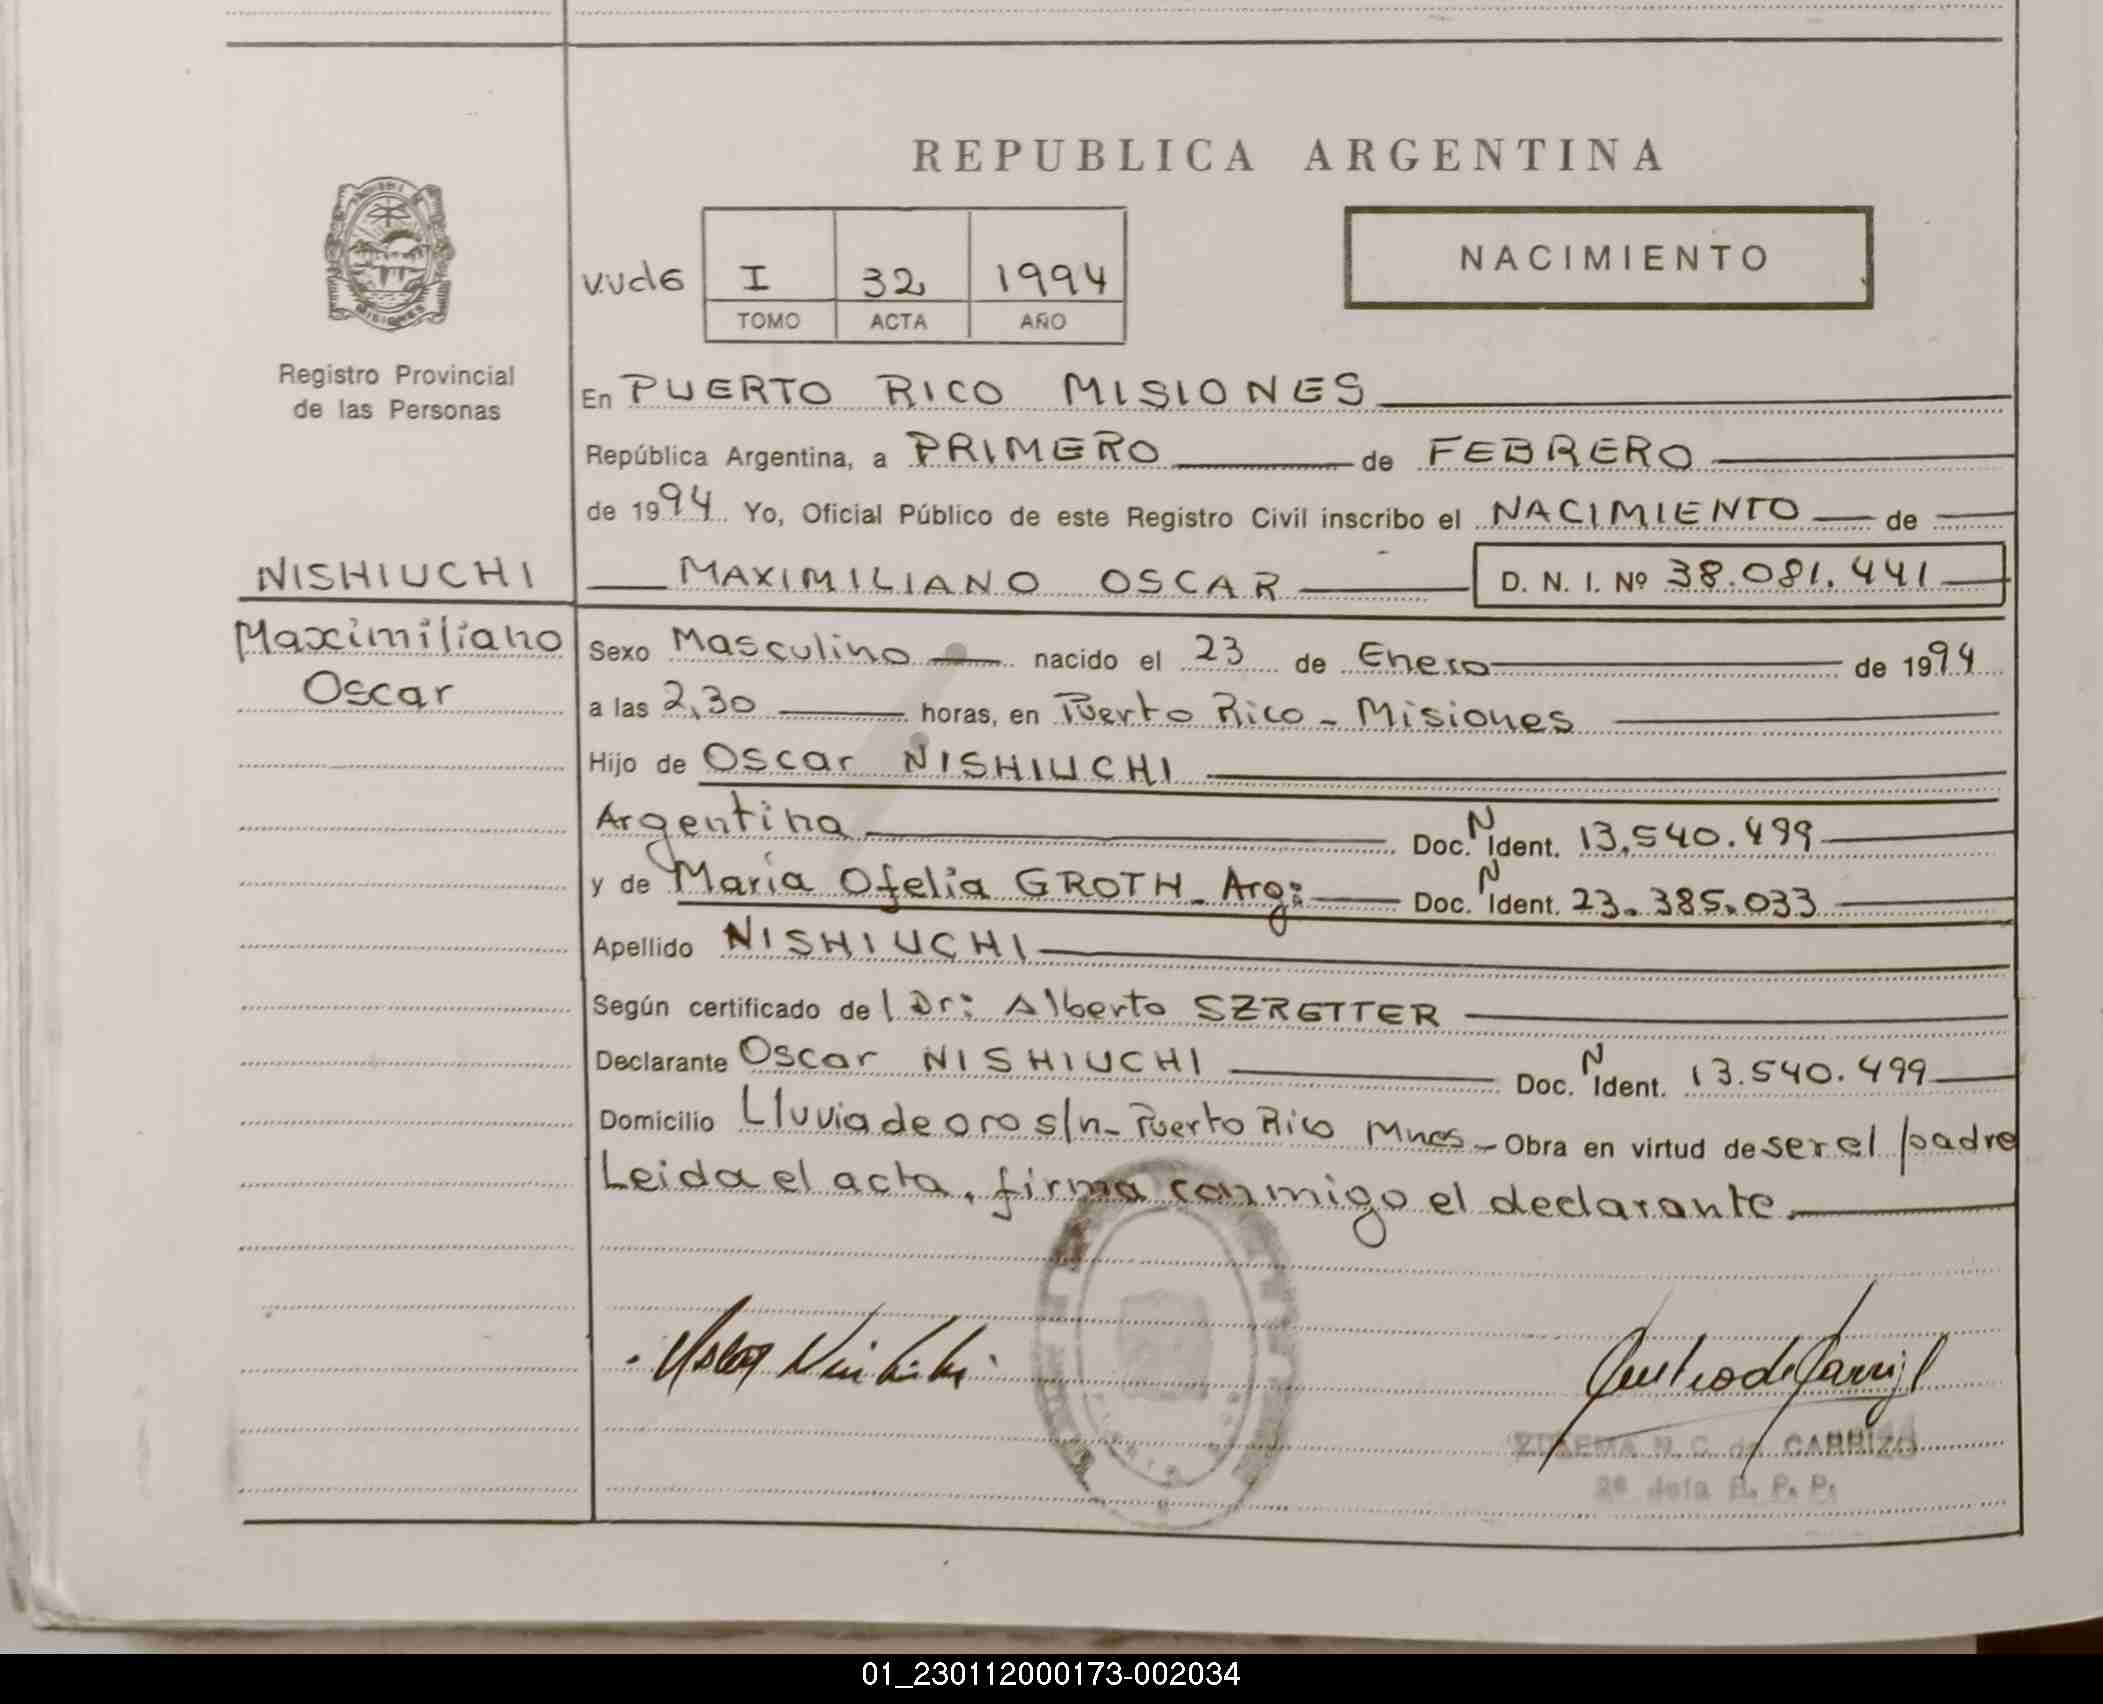 REPUBLICA ARGENTINA
NACIMIENTO
MISIONES
I 32 1994
TOMO ACTA AÑO
Registro Provincial
de las Personas
En PUERTO RICO MISIONES
República Argentina, a PRIMERO de FEBRERO
de 1994 Yo, Oficial Público de este Registro Civil inscribo el NACIMIENTO de
NISHIUCHI
MAXIMILIANO OSCAR D. N. I. Nº 38.081.441
Maximiliano
Oscar
Sexo Masculino nacido el 23 de Enero de 1994
a las 2,30 horas, en Puerto Rico - Misiones
Hijo de Oscar NISHIUCHI
Argentina Doc. N Ident. 13.540.499
y de María Ofelia GROTH - Arg: Doc. N Ident. 23.385.033
Apellido NISHIUCHI
Según certificado del Dr: Alberto SZRETTER
Declarante Oscar NISHIUCHI Doc. N Ident. 13.540.499
Domicilio Lluvia de oro s/n - Puerto Rico Mnes - Obra en virtud de ser el padre
Leida el acta, firma conmigo el declarante.
N. C. de CARRIZO
R. P. P.
01_230112000173-002034